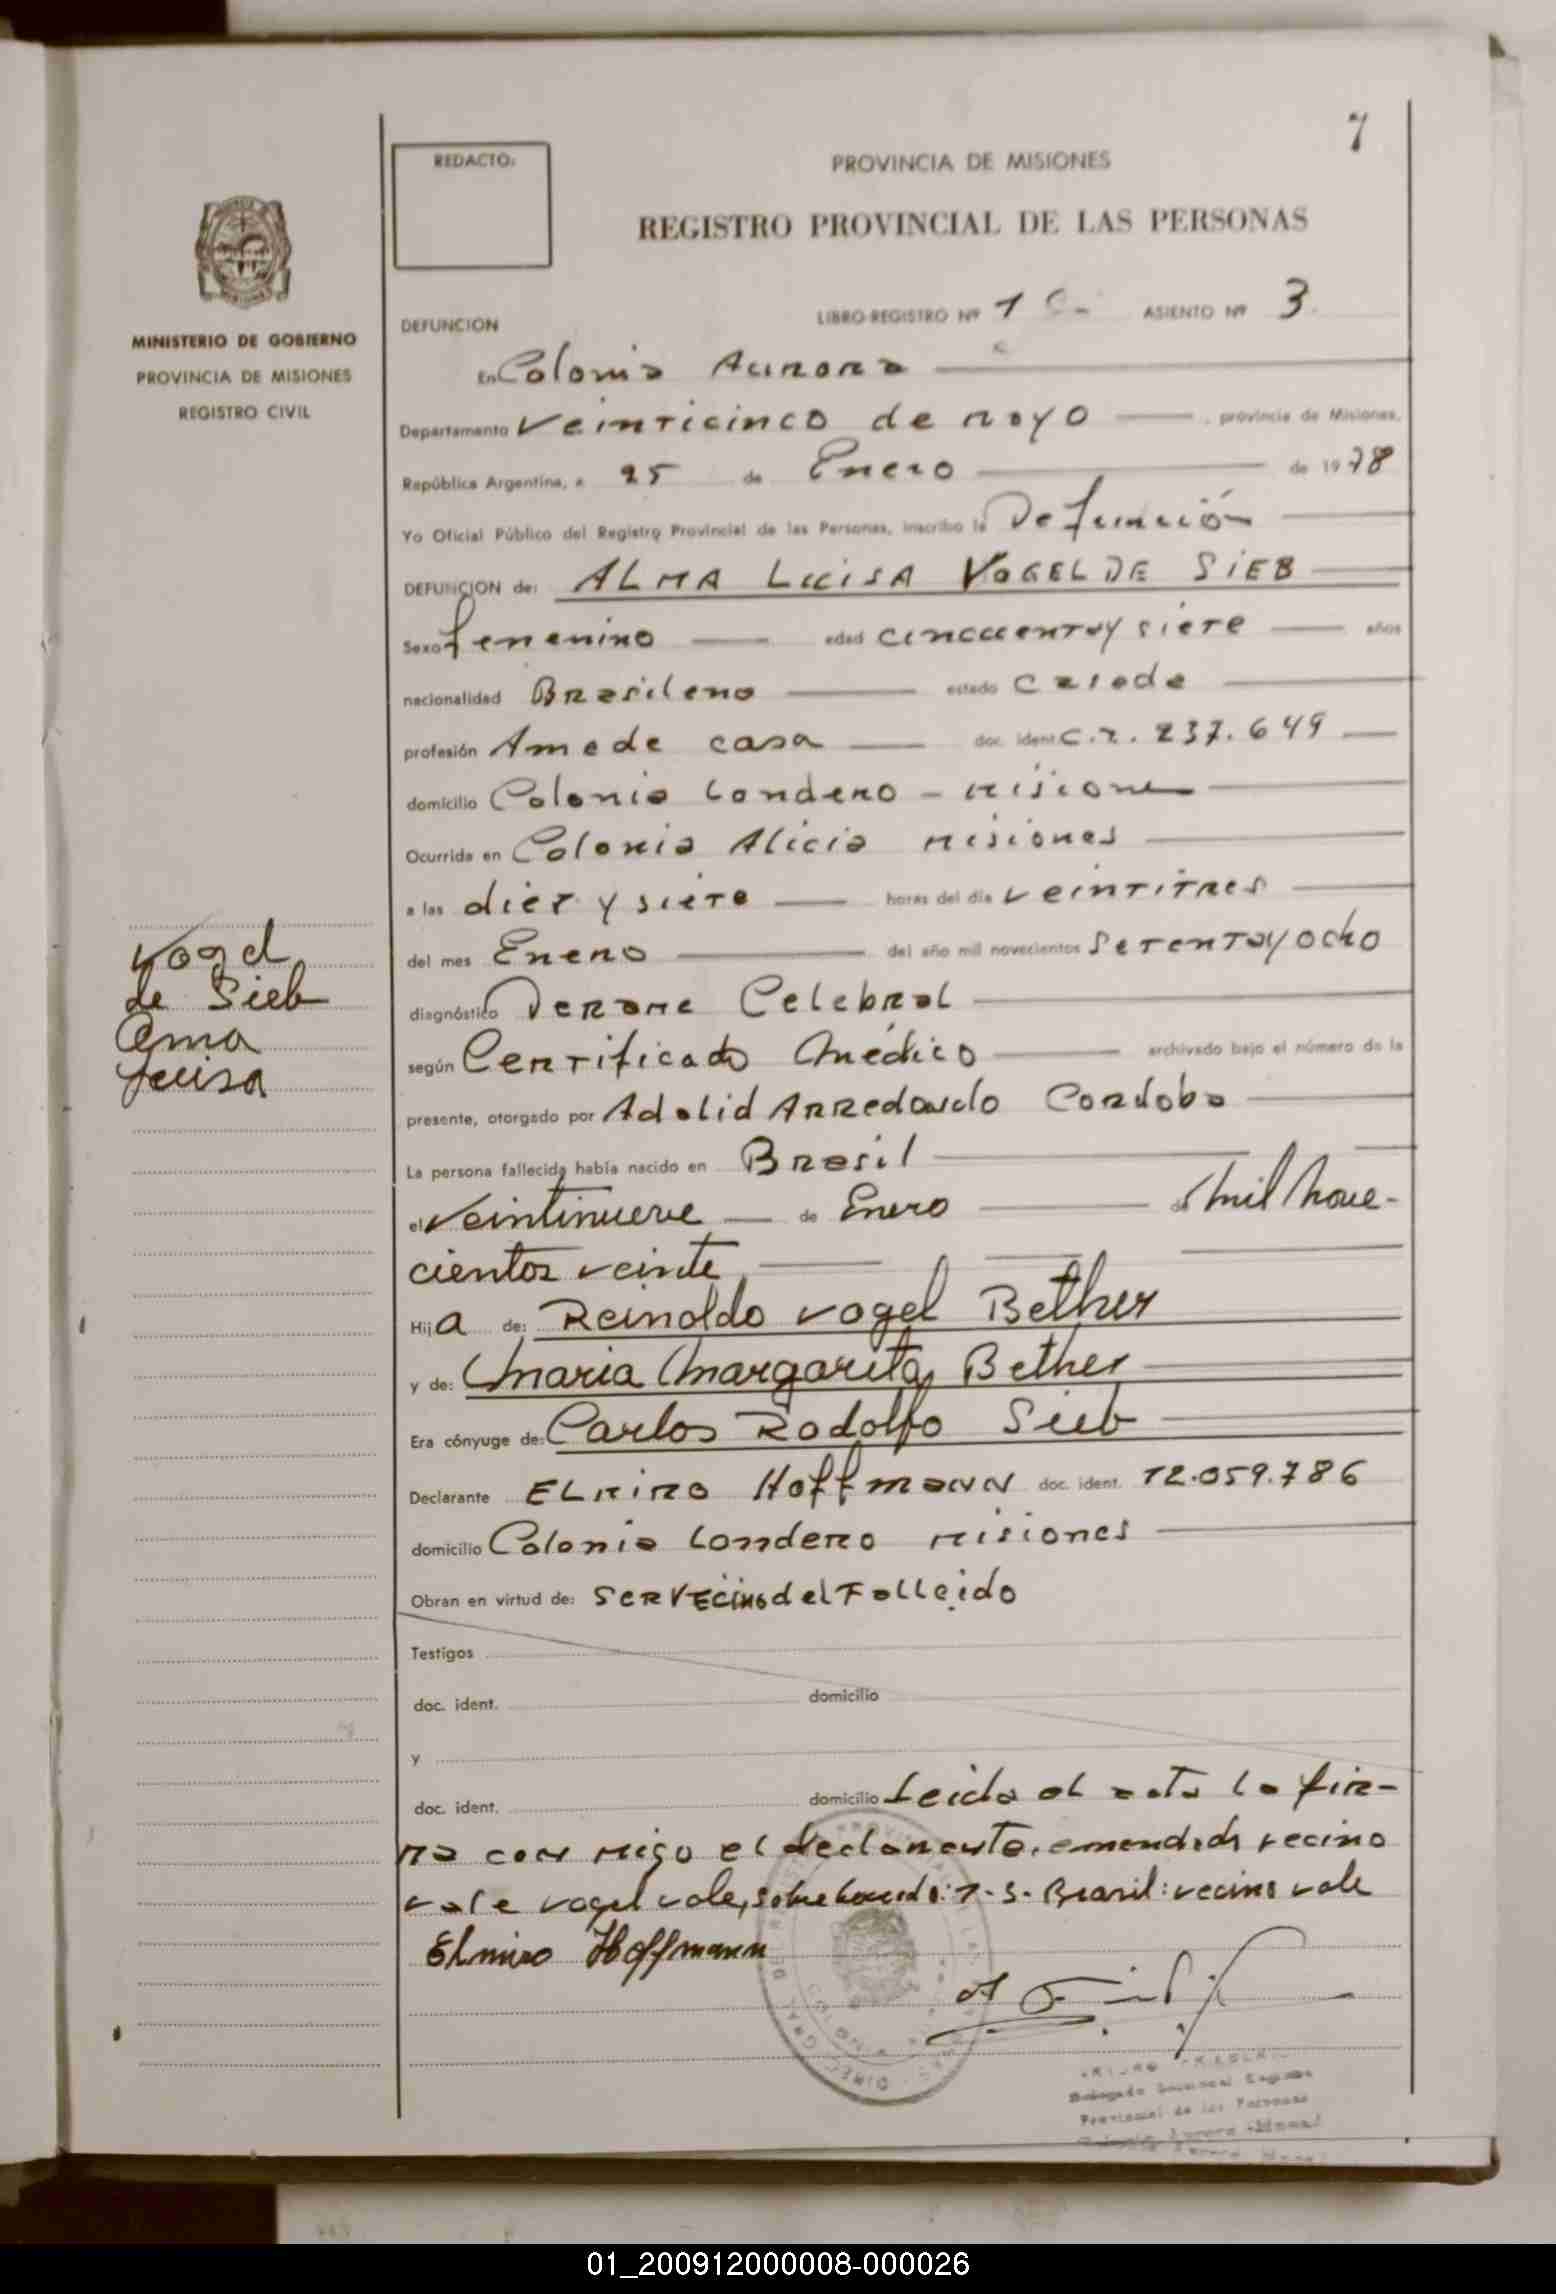 7
REDACTO:
PROVINCIA DE MISIONES
REGISTRO PROVINCIAL DE LAS PERSONAS
MINISTERIO DE GOBIERNO
PROVINCIA DE MISIONES
REGISTRO CIVIL
DEFUNCION
LIBRO-REGISTRO Nº 1 ASIENTO Nº 3
En Colonia Aurora
Departamento Veinticinco de mayo , provincia de Misiones,
República Argentina, a 25 de Enero de 1978
Yo Oficial Público del Registro Provincial de las Personas, inscribo la Defunción
DEFUNCION de: ALMA LUISA VOGEL DE SIEB
Sexo femenino edad cincuenta y siete años
nacionalidad Brasileno estado casada
profesión Ama de casa doc. ident. C.I. 237.649
domicilio Colonia Londero - Misiones
Ocurrida en Colonia Alicia Misiones
a las diez y siete horas del día veintitres
del mes Enero del año mil novecientos setenta y ocho
diagnóstico Derame Celebral
según Certificado Médico archivado bajo el número de la
presente, otorgado por Adalid Arredondo Cordoba
La persona fallecida había nacido en Brasil
el Veintinueve de Enero de mil nove-
cientos veinte
Hija de: Reinoldo Vogel Bether
y de: Maria Margarita Bether
Era cónyuge de: Carlos Rodolfo Sieb
Declarante ELMIRO Hoffmann doc. ident. 12.059.786
domicilio Colonia Londero Misiones
Obran en virtud de: ser vecino del Falleido
Testigos
doc. ident. domicilio
y
doc. ident. domicilio Leida el acta la fir-
ma con migo el declarante, emendado vecino
vale vogel vale, sobre borrado: 7-S- Brasil: vecino vale
Elmiro Hoffmann
Vogel
de Sieb
Alma
Luisa
Provincial de las Personas
01_200912000008-000026